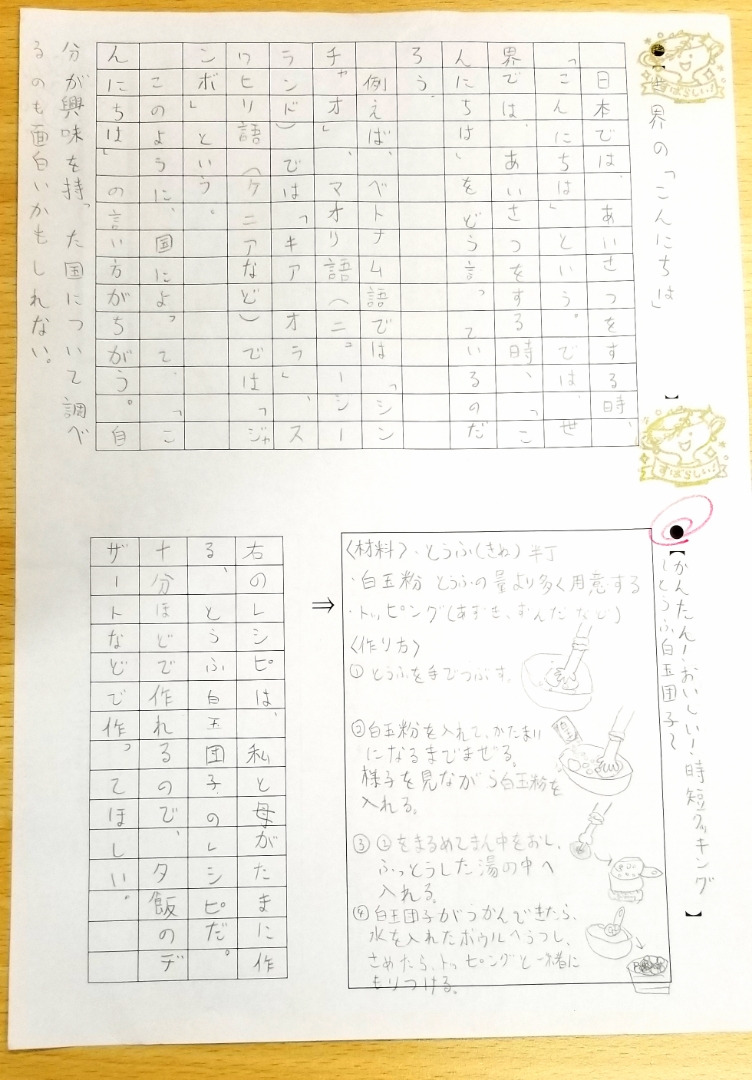 【世界の「こんにちは」】
すばらしい!
すばらしい!
日本では、あいさつをする時、
「こんにちは」という。では、世
界では、あいさつをする時、「こ
んにちは」をどう言っているのだ
ろう。
例えば、ベトナム語では「シン
チャオ」、マオリ語(ニュージー
ランド)では「キア オラ」、ス
ワヒリ語(ケニアなど)では「ジャ
ンボ」という。
このように、国によって、「こ
んにちは」の言い方がちがう。自
分が興味を持った国について調べ
るのも面白いかもしれない。
【かんたん!おいしい!時短クッキング】
〜とうふ白玉団子〜
〈材料〉・とうふ(きぬ)半丁
・白玉粉 とうふの量より多く用意する
・トッピング(あずき、ずんだなど)
〈作り方〉
①とうふを手でつぶす。
②白玉粉を入れて、かたまり
になるまでまぜる。
様子を見ながら白玉粉を
入れる。
③②をまるめてまん中をおし、
ふっとうした湯の中へ
入れる。
④白玉団子がうかんできたら、
水を入れたボウルへうつし、
さめたら、トッピングと一緒に
もりつける。
⇒
右のレシピは、私と母がたまに作
る、とうふ白玉団子のレシピだ。
十分ほどで作れるので、夕飯のデ
ザートなどで作ってほしい。